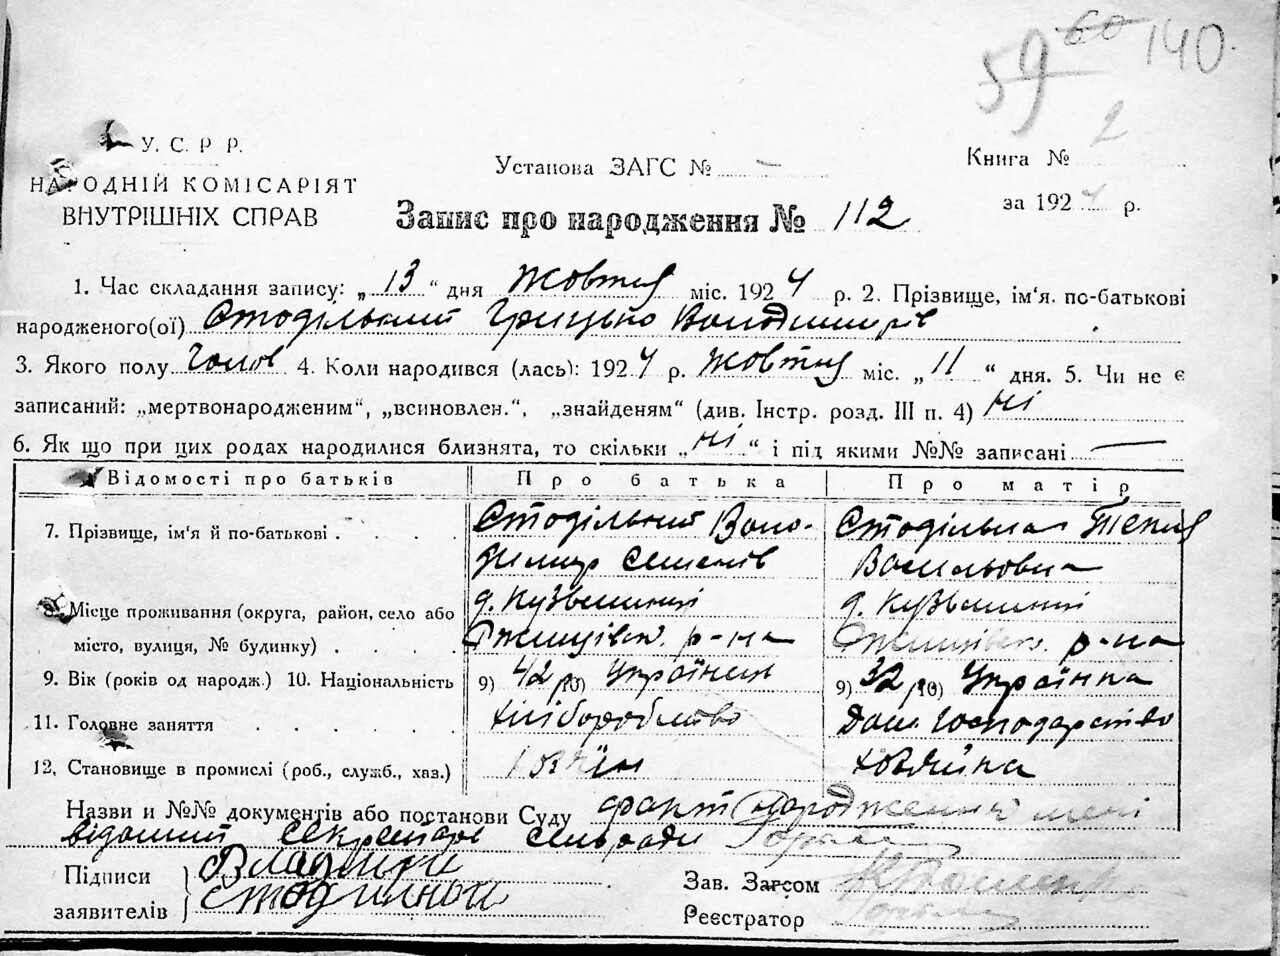 59 60 140.
У. С. Р. Р.
НАРОДНІЙ КОМІСАРІЯТ
ВНУТРІШНІХ СПРАВ
Установа ЗАГС №
Книга № 2
за 1924 р.
Запис про народження № 112
1. Час складання запису: „13“ дня Жовтня міс. 1924 р. 2. Прізвище, ім‘я. по-батькові
народженого(ої) Стодільний Грицько Володимирів
3. Якого полу чолов 4. Коли народився (лась): 1924 р. Жовтня міс. „11“ дня. 5. Чи не є
записаний: „мертвонародженим“, „всиновлен.“, „знайденям“ (див. Інстр. розд. III п. 4) ні
6. Як що при цих родах народилися близнята, то скільки „ні“ і під якими №№ записані —
Відомості про батьків Про батька Про матір
7. Прізвище, ім‘я й по-батькові . . . . Стодільний Воло- Стодільна
димир Семенів Васильовна
8. Місце проживання (округа, район, село або д. Кузьминці д. Кузьминці
місто, вулиця, № будинку) . . . . р-на р-на
9. Вік (років од народж.) 10. Національність 9) 42 р 10) Українець 9) 32 р 10) Українка
11. Головне заняття . . . . . . хліборобство Дом. Господарство
12. Становище в промислі (роб., служб., хаз.) хозяїн хозяйка
Назви и №№ документів або постанови Суду факт народження мені
відомий секретарь сельради
Підписи
заявителів
Владимир
Стодилной
Зав. Загсом
Реєстратор